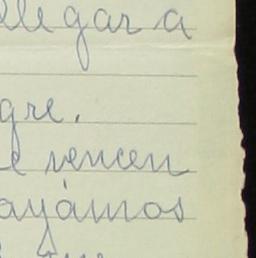 llegar a
gre.
e vencen
ayámos